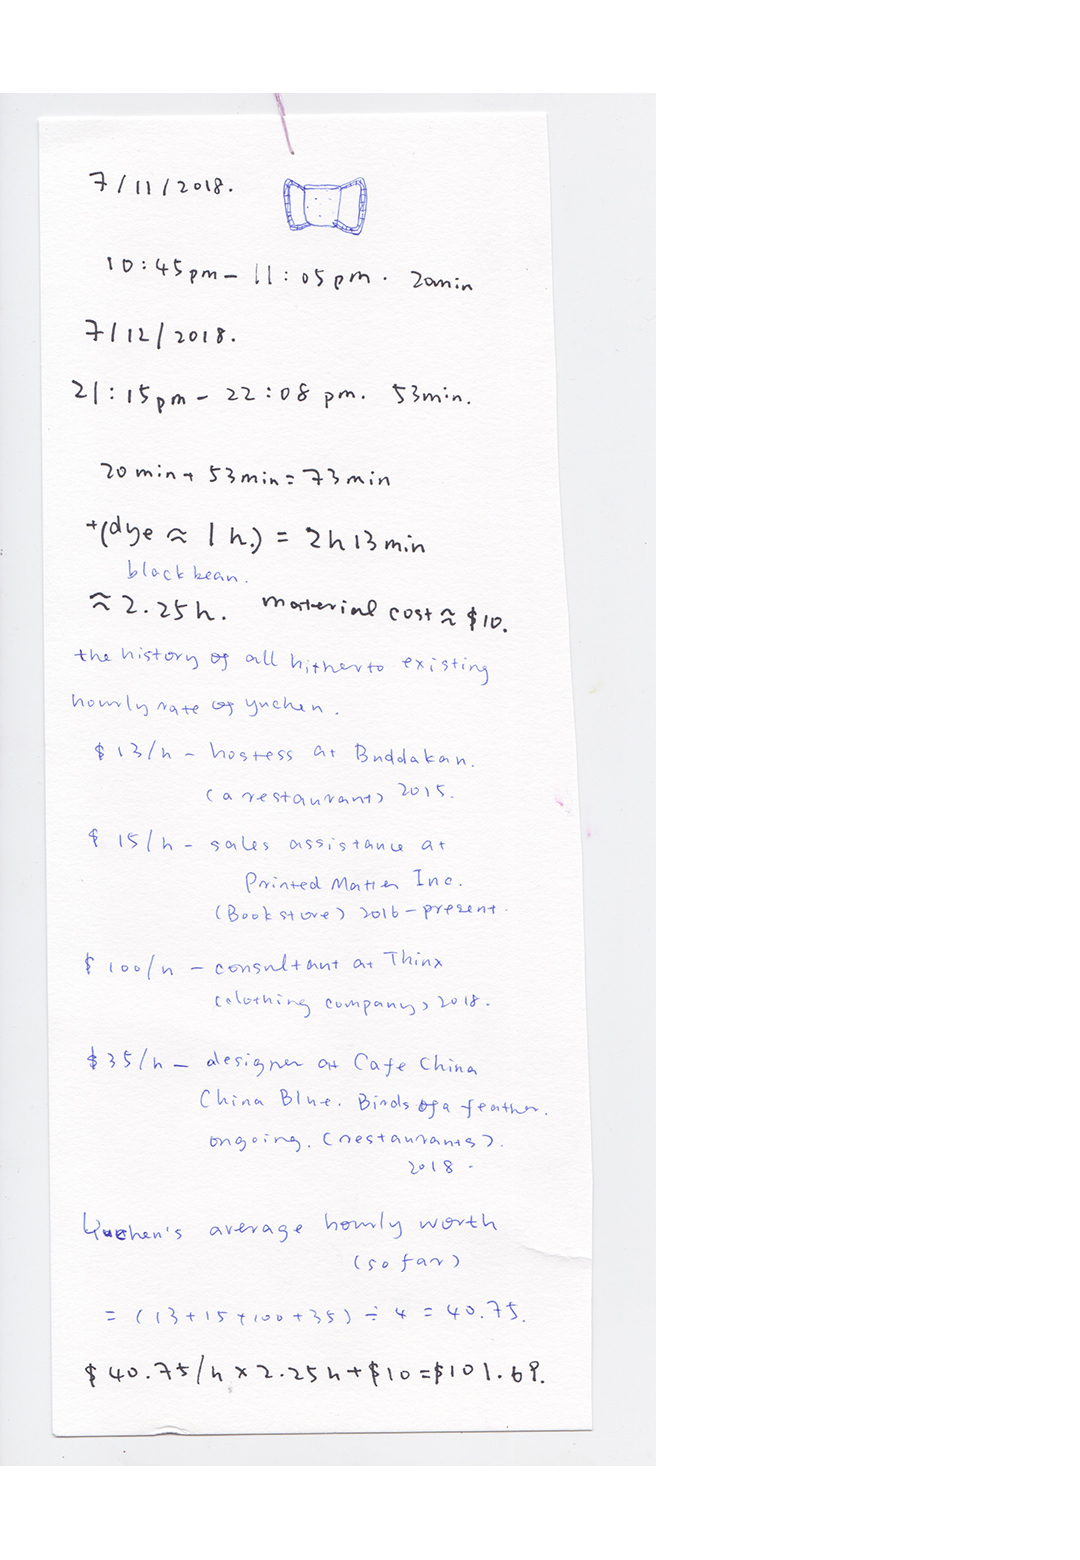 7/11/2018.
10:45pm - 11:05pm. 20min
7/12/2018.
21:15pm - 22:08 pm. 53min.
20 min + 53 min = 73 min
+(dye ≈ 1 h.) = 2h 13 min
black bean.
≈ 2.25 h. material cost ≈ $10.
the history of all hitherto existing
hourly rate of yuchen.
$13/h - hostess at Buddakan.
(a restaurant) 2015.
$15/h - sales assistance at
Printed Matter Inc.
(Bookstore) 2016 - present.
$100/h - consultant at Thinx
(clothing company) 2018.
$35/h - designer at Cafe China
China Blue. Birds of a feather.
ongoing. (restaurants).
2018.
Yuchen's average hourly worth
(so far)
= (13 + 15 + 100 + 35) ÷ 4 = 40.75.
$40.75/h × 2.25h + $10 = $101.69.